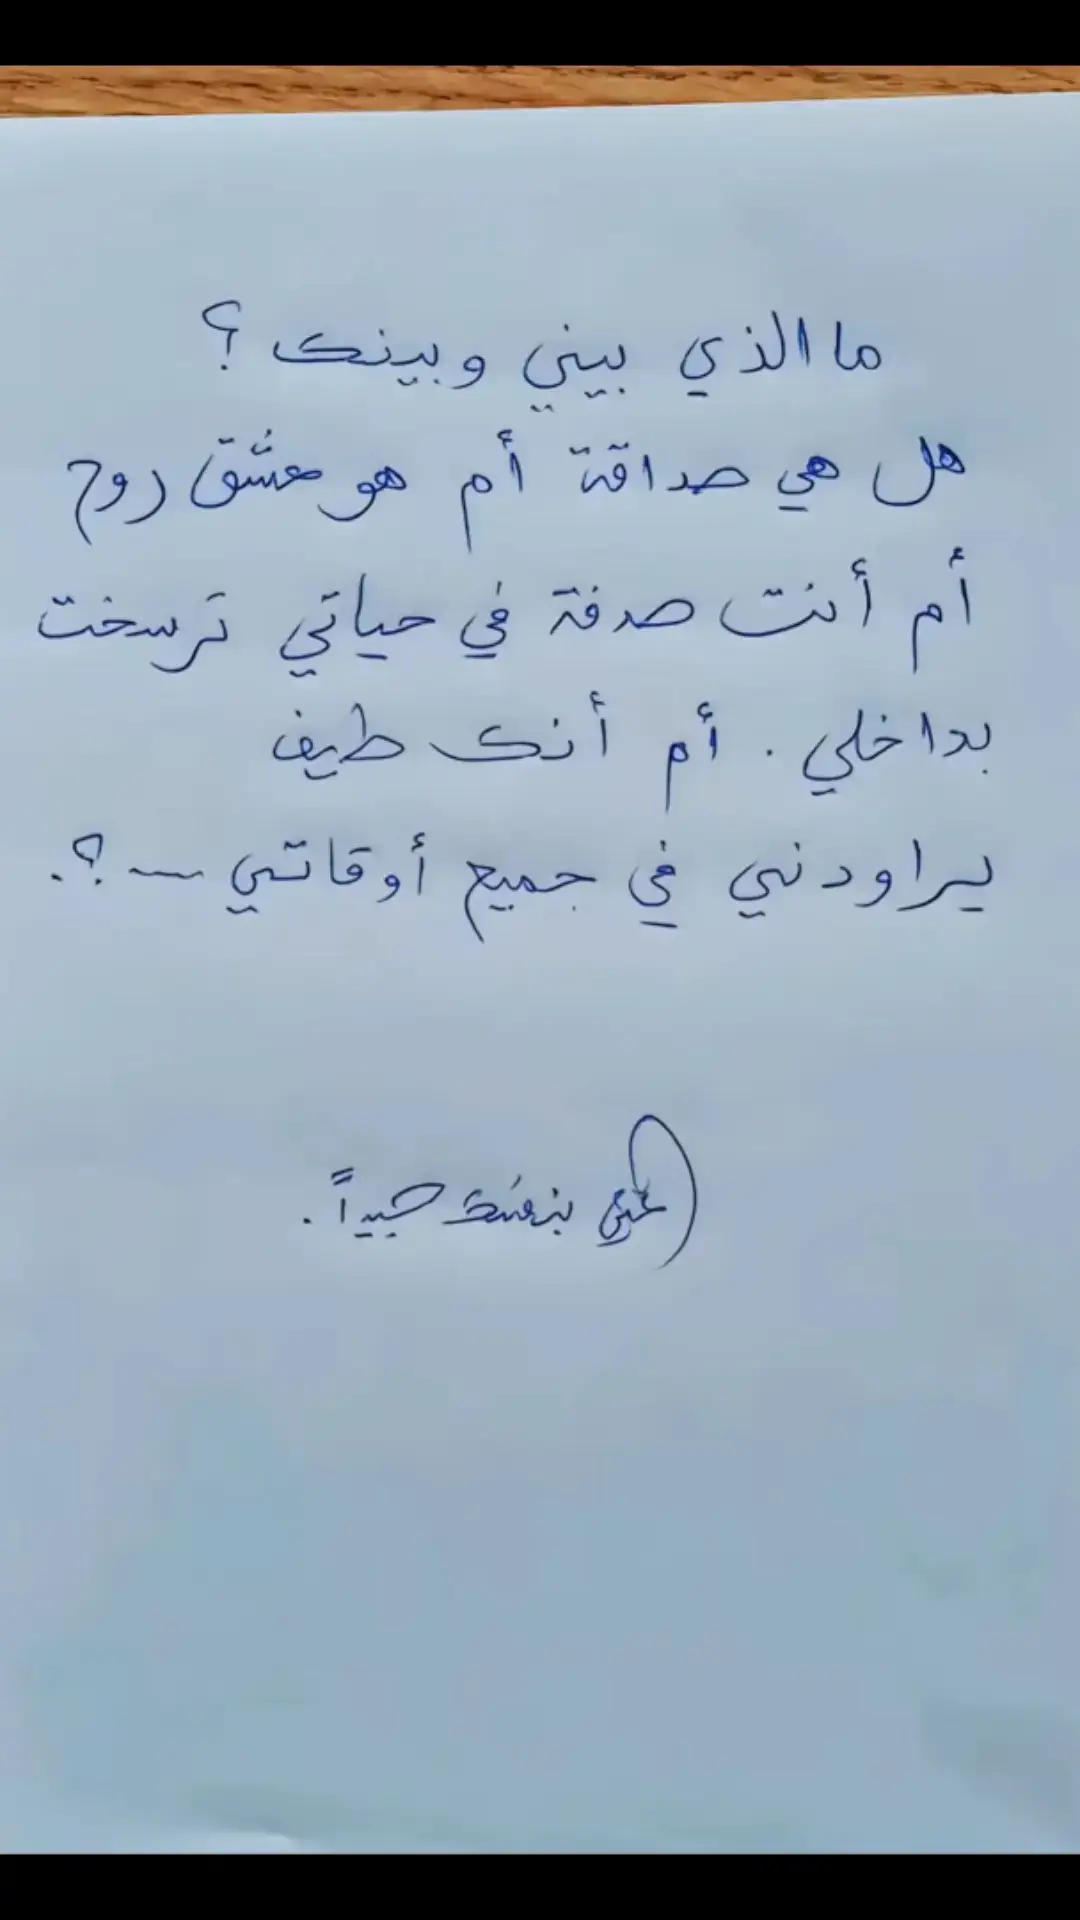 ما الذي بيني وبينك ؟
هل هي صداقة أم هو عشق روح
أم أنت صدفة في حياتي ترسخت
بداخلي . أم أنك طيف
يراودني في جميع أوقاتي ؟.
بنفسك جيداً .